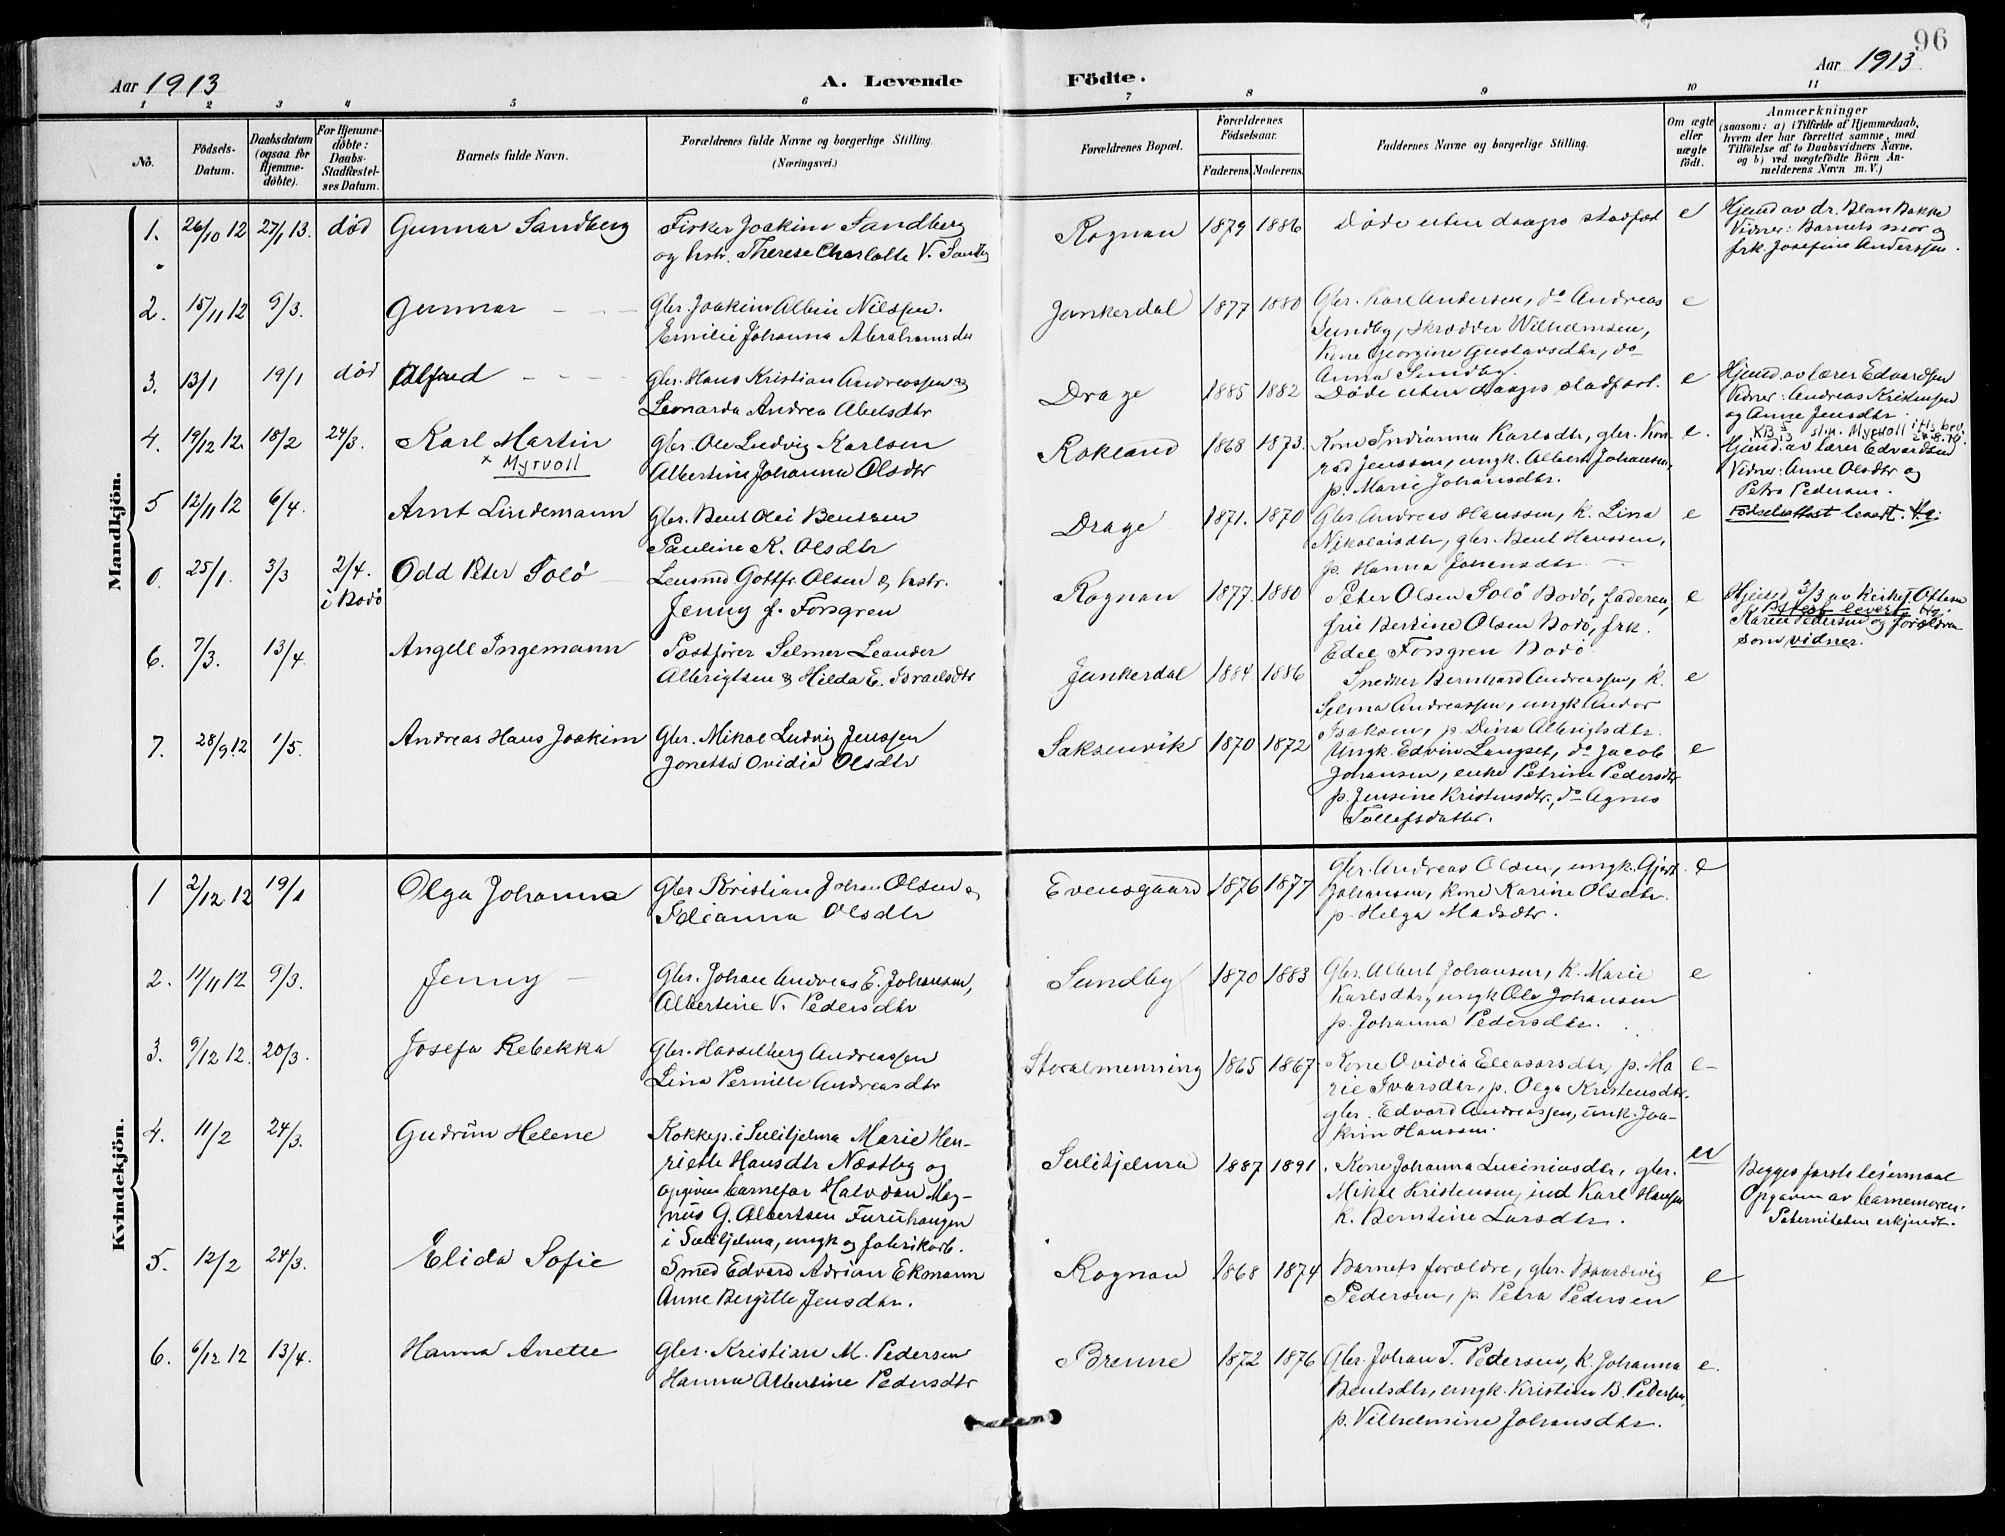 96
Aar 1913
A. Levende Födte.
Aar 1913
1 2 3 4 5 6 7 8 9 10 11
No.
Födsels-
Datum.
Daabsdatum
(ogsaa for
Hjemme-
döbte).
For Hjemme-
döbte:
Daabs-
Stadfæstel-
ses Datum.
Barnets fulde Navn.
Forældrenes fulde Navne og borgerlige Stilling.
(Næringsvei.)
Forældrenes Bopæl.
Forældrenes
Födselsaar.
Faderens. Moderens.
Faddernes Navne og borgerlige Stilling.
Om ægte
eller
uægte
födt.
Anmærkninger
(saasom: a) i Tilfælde af Hjemmedaab,
hvem der har forrettet samme, med
Tilföielse af to Daabsvidners Navne,
og b) ved uægtefödte Börn An-
melderens Navn m. V.)
Mandkjön.
1. 26/10 12 27/1 13. død Gunnar Sandberg
Fisker Joakim Sandberg
og hstr. Therese Charlotte V. Sandbg
Rognan 1879 1886
Døde uten daaps stadfæst
e
Hjemd av dr. Blom Bakke
Vidner: Barnets mor og
frk. Josefine Anderssen.
2. 15/11 12 9/3. Gunnar
Gbr. Joakim Albin Nilssen.
Emilie Johanna Abrahamsdtr
Junkerdal 1877 1880
Gbr. Karl Andersen, do Andreas
Sundby, skrædder Wilhelmsen,
Kone Georgine Gustavsdtr, do
Anna Sundby.
e
3. 13/1 19/1 død Alfred
Gbr. Hans Kristian Andreassen &
Leonarda Andrea Abelsdtr
Drage 1885 1882
Døde uten daaps stadfæst.
e
Hjemd. av lærer Edvardsen
Vidner: Andreas Kristensen
og Anne Jensdtr.
4. 19/12 12. 18/2 24/3. Karl Martin
× Myrvoll
Gbr. Ole Ludvig Karlsen
Albertine Johanna Olsdtr
Rokland 1868 1873.
Kone Indianna Karlsdtr, gbr. Kon-
rad Jenssen, ungk. Albert Johansen,
p. Marie Johansdtr.
e.
Myrvoll
Hjemd. av lærer Edvardsen
Vidner: Anne Olsdtr og
Petra Pedersen.
5 12/11 12 6/4. Arnt Lindemann
Gbr. Bent Olai Bentsen
Pauline K. Olsdtr
Drage 1871. 1870
Gbr. Andreas Hanssen, k. Lina
Nikolaisdtr, gbr. Bent Hanssen,
p. Hanna Johansdtr.
e
Fødselsattest levert. Hg.
0. 25/1. 3/3 2/4.
i Bodø
Odd Peter Solø
Lensmd Gottfr. Olsen & hstr.
Jenny f. Forsgren
Rognan 1877. 1880
Peter Olsen Solø Bodø, faderen,
frue Bertine Olsen Bodø, frk.
Edel Forsgren Bodø
e
Hjemd. 3/3 av kirkes. Ottesen
Attest levert Hg.
Karen Pedersen og forældrene
som vidner.
6. 7/3. 13/4. Angell Ingemann
Postfører Selmer Leander
Albrigtsen & Hilda E. Israelsdtr
Junkerdal 1884 1886
Snekker Bernhard Andreassen, k.
Selma Andreassen, ungk Andor
Isaksen, p. Dina Albrigtsdtr.
e
7. 28/9. 12 1/5. Andreas Hans Joakim
Gbr. Mikal Ludvig Jenssen
Jonetta Ovidia Olsdtr
Saksenvik 1870 1872
Ungk. Edvin Langset, do Jacob
Johansen, enke Petrine Pedersdtr
p. Jensine Kristensdtr., do Agnes
Tollefsdatter.
e
Kvindekjön.
1 2/12 12 19/1 Olga Johanna
Gbr Kristian Johan Olsen &
Idianna Olsdtr
Evensgaard 1876 1877
Gbr. Andreas Olsen, ungk. Gjert
Johansen, kone Karine Olsdtr.
p. Helga Madsdtr.
e
2. 11/11 12 9/3. Jenny
Gbr. Johan Andreas E. Johansen,
Albertine V. Pedersdtr
Sundby 1870 1883
Gbr. Albert Johansen, k. Marie
Karlsdtr, ungk Ole Johansen
p. Johanna Pedersdtr.
e
3. 9/12 12. 20/3. Josefa Rebekka
Gbr. Hasselberg Andreassen
Lina Pernille Andreasdtr
Storalmenning 1865 1867
Kone Ovidia Eleasarsdtr, p. Ma-
rie Ivarsdtr, p. Olga Kristensdtr.
gbr. Edvard Andreassen, unk. Joa-
kim Hanssen.
e
4. 11/2 24/3. Gudrun Helene
Kokkep. i Sulitjelma Marie Hen-
riette Hansdtr Næstby og
opgiven barnefar Halvdan Mag-
nus G. Albertsen Furuhaugen
i Sulitjelma, ungk og fabrikarb.
Sulitjelma 1887 1891
Kone Johanna Luciniusdtr, gbr.
Mikal Kristensen, ind Karl Hansen
k. Berntine Larsdtr.
u
Begges første leiermaal
Opgaven av barnemoren.
Paterniteten erkjendt.
5. 12/2 24/3. Elida Sofie
Smed Edvard Adrian Ekmann
Anne Bergitte Jensdtr.
Rognan 1868 1874
Barnets forældre, gbr. Baardvig
Pedersen, p. Petra Pedersen
e
6. 6/12 12 13/4. Hanna Anette
Gbr. Kristian M. Pedersen
Hanna Albertine Pedersdtr
Brenne 1872 1876
Gbr. Johan T. Pedersen, k. Johanna
Bentsdtr, ungk. Kristian B. Pedersen,
p. Vilhelmine Johansdtr.
e.